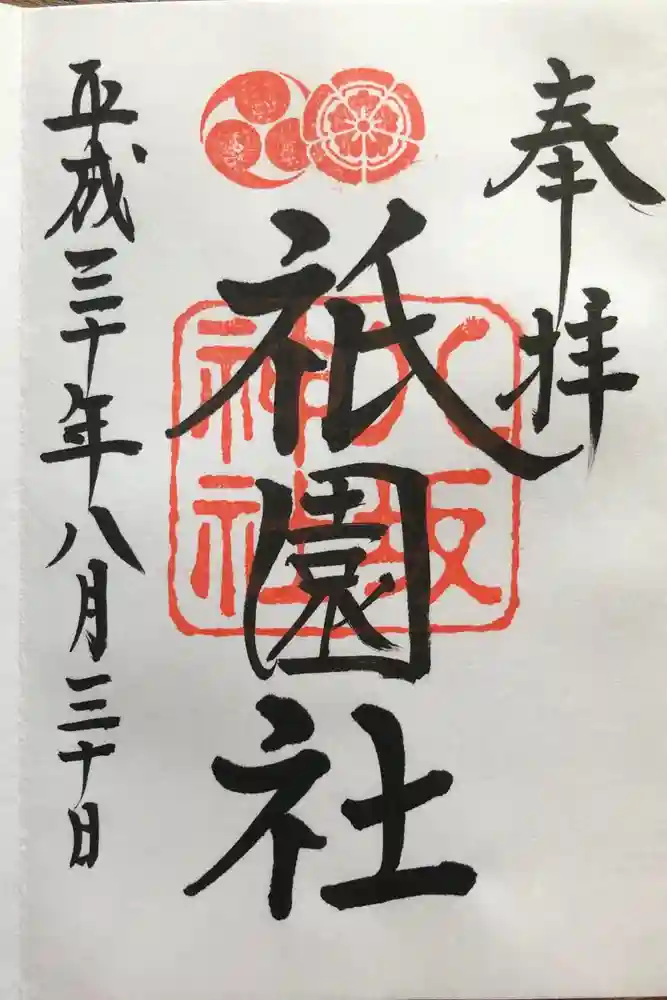 奉拝
八坂
神社
祇園社
平成三十年八月三十日